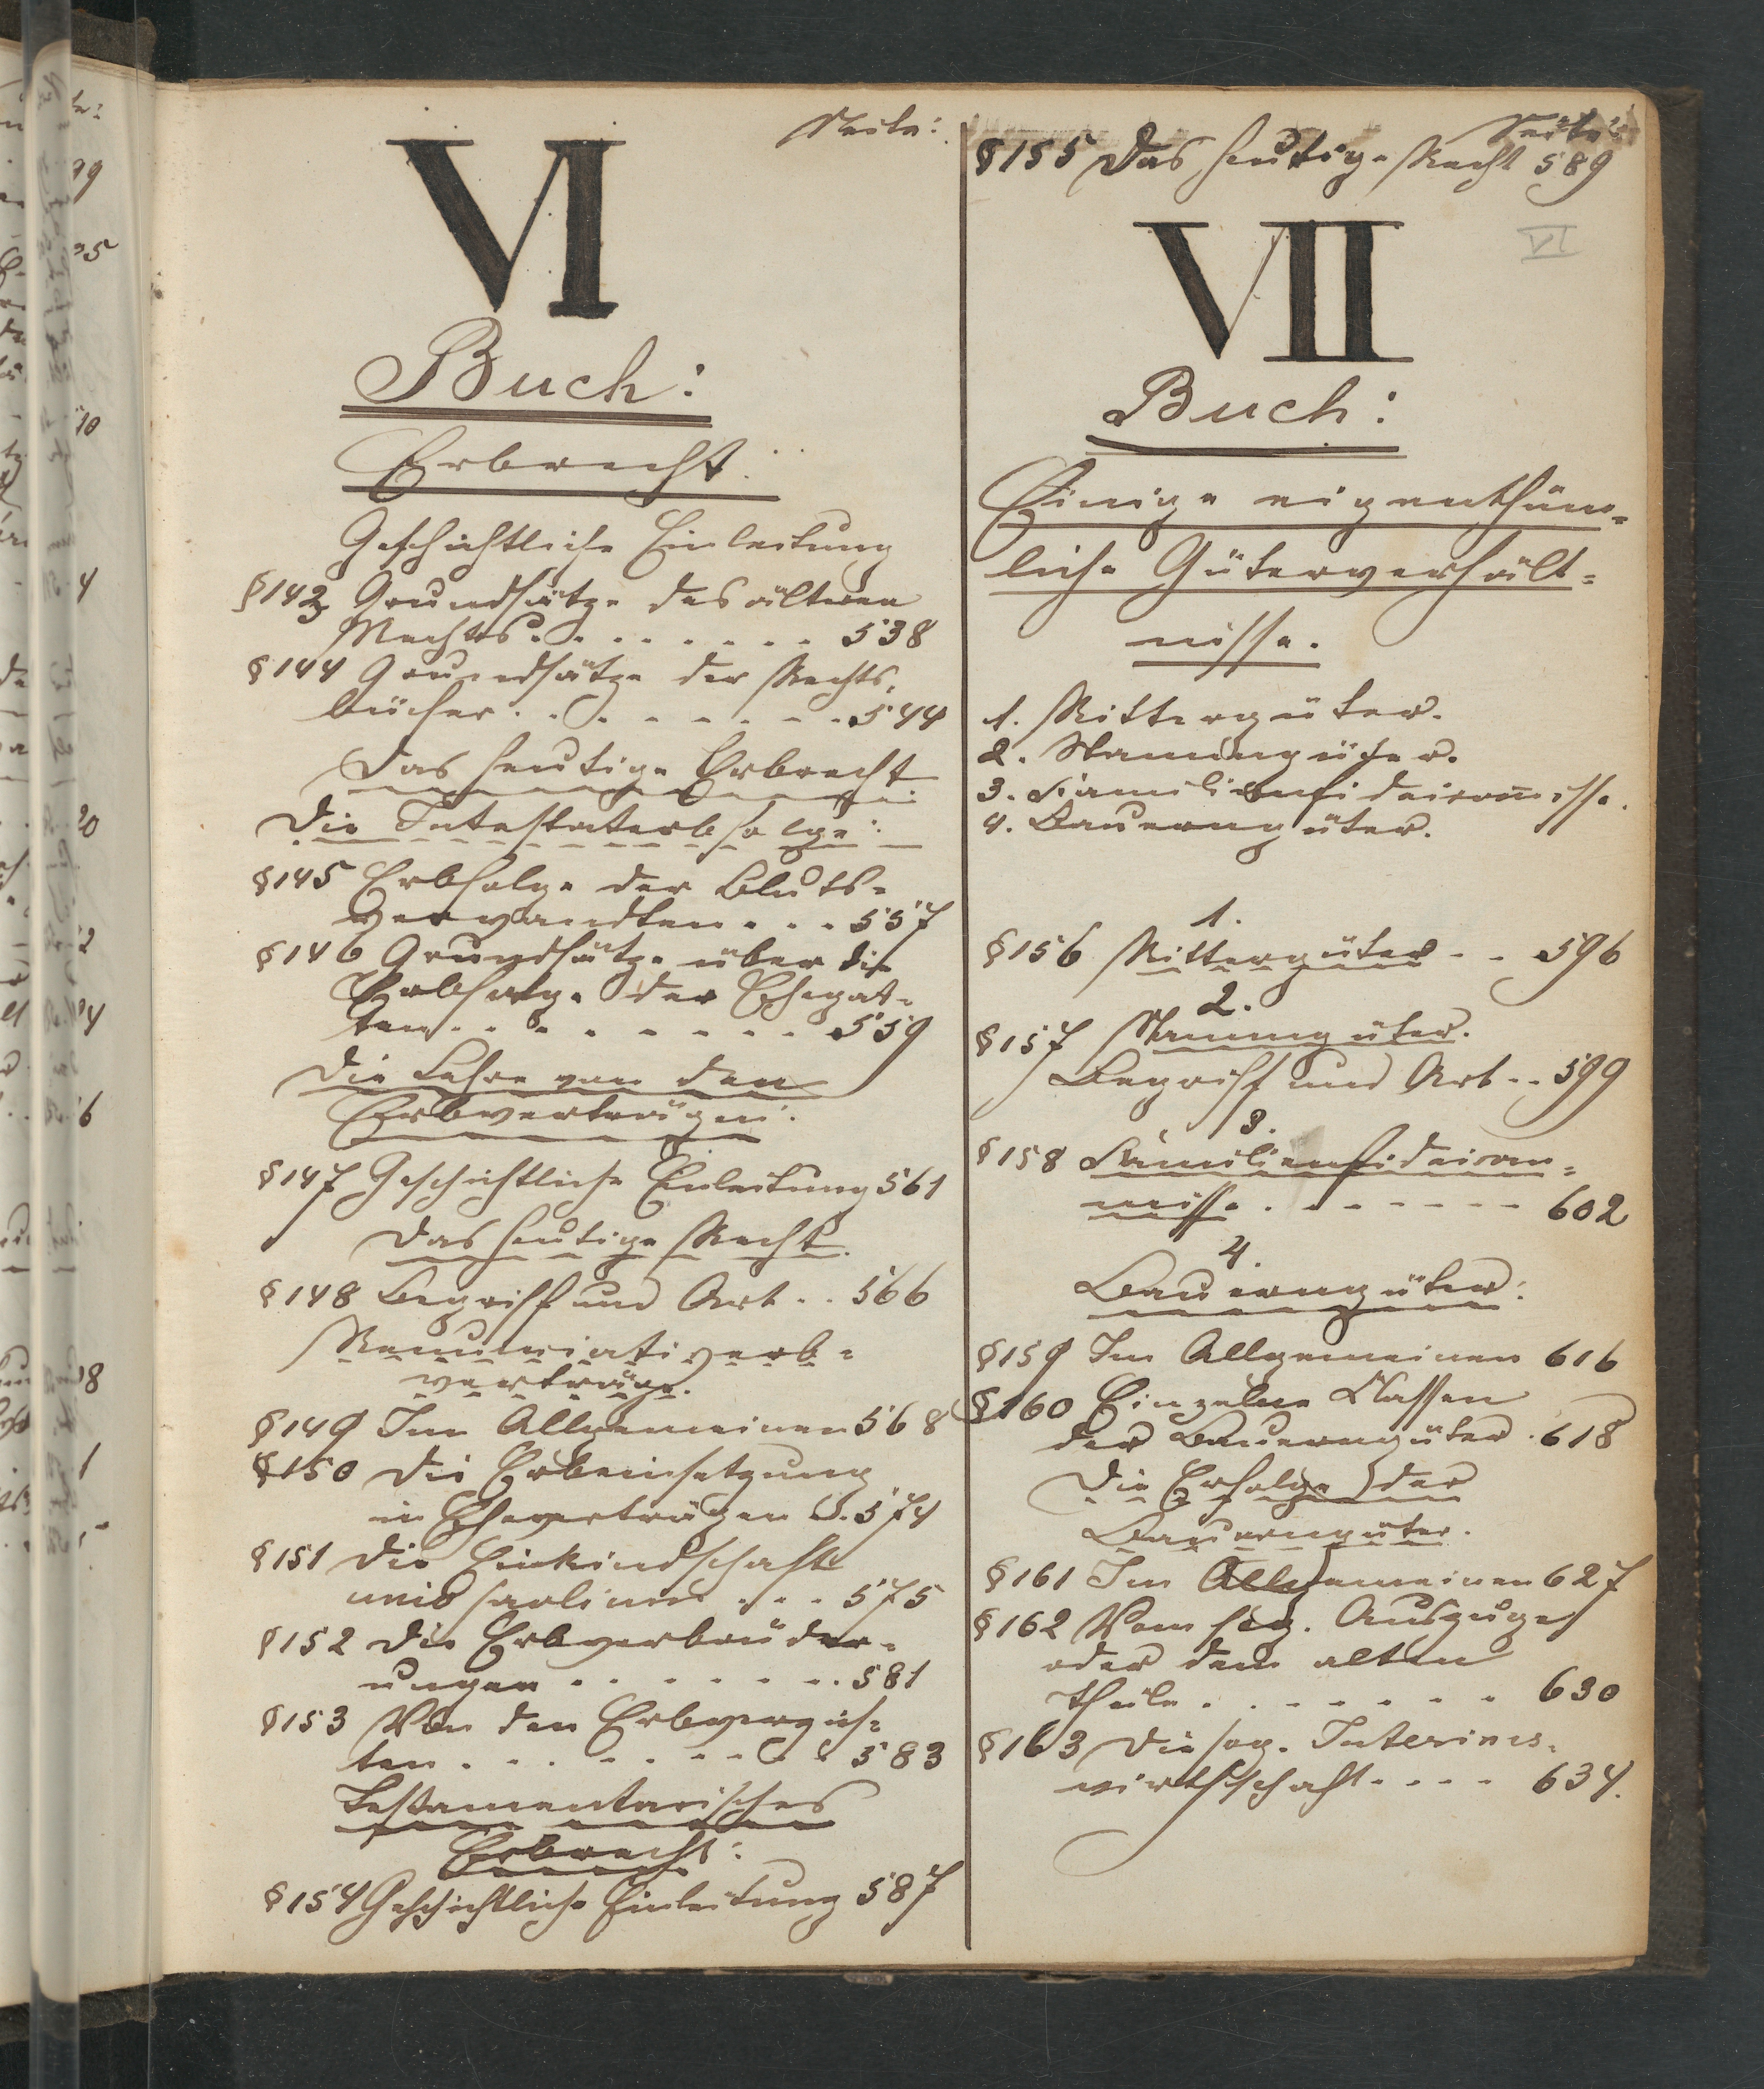 Seite:
VI
Buch:
Erbrecht.
Geschichtliche Einleitung
§143 Grundsätze des älteren
Rechts . . . . . . . . 538
§144 Grundsätze der Rechts-
bücher . . . . . . . . 544
Das heutige Erbrecht
Die Intestaterbfolge:
§145 Erbfolge der Bluts-
verwandten . . . 557
§146 Grundsätze über die
Erbfolge der Ehegat-
ten . . . . . . . . 559
Die Lehre von den
Erbverträgen:
§147 Geschichtliche Einleitung 561
Das heutige Recht.
§148 Begriff und Art . . 566
Renunciativerb-
verträge.
§149 Im Allgemeinen 568
§150 Die Erbeinsetzung
in Eheverträgen S. 574
§151 Die Einkindschaft
unio prolium . . . 575
§152 Die Erbverbrüder-
ungen . . . . . . . 581
§153 Von den Erbverzich-
ten . . . . . . . . 583
Testamentarisches
Erbrecht:
§154 Geschichtliche Einleitung 587
Seite:
§155 Das heutige Recht 589
VI
VII
Buch:
Einige eigenthüm-
liche Güterverhält-
nisse.
1. Rittergüter.
2. Stammgüter.
3. Familienfideicom̄isse.
4. Bauerngüter.
1.
§156 Rittergüter . . 596
2.
§157 Stammgüter.
Begriff und Art . . 599
3.
§158 Familienfideicom-
misse . . . . . . . 602
4.
Bauerngüter:
§159 Im Allgemeinen 616
§160 Einzelne Classen
der Bauerngüter . 618
Die Erfolge der
Bauerngüter.
§161 Im Allgemeinen 627
§162 Vom sog. Auszuge
oder dem alten
Theile . . . . . . . 630
§163 Die sog. Interims-
wirthschaft . . . . 634.